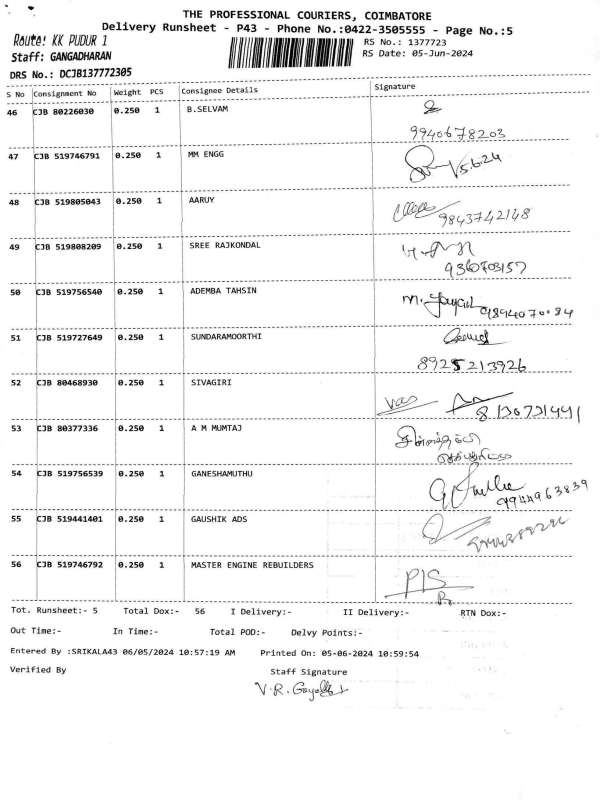 THE PROFESSIONAL COURIERS, COIMBATORE
Delivery Runsheet - P43 - Phone No.:0422-3505555 - Page No.:5
Route: KK PUDUR 1
RS No.: 1377723
Staff: GANGADHARAN
RS Date: 05-Jun-2024
DRS No.: DCJB137772305
S No Consignment No Weight PCS Consignee Details Signature
46 CJB 80226030 0.250 1 B.SELVAM
9940678203
47 CJB 519746791 0.250 1 MM ENGG
5.6.24
48 CJB 519805043 0.250 1 AARUY
9843742148
49 CJB 519808209 0.250 1 SREE RAJKONDAL
936703157
50 CJB 519756540 0.250 1 ADEMBA TAHSIN
51 CJB 519727649 0.250 1 SUNDARAMOORTHI
8925213926
52 CJB 80468930 0.250 1 SIVAGIRI
53 CJB 80377336 0.250 1 A M MUMTAJ
54 CJB 519756539 0.250 1 GANESHAMUTHU
9944963839
55 CJB 519441401 0.250 1 GAUSHIK ADS
56 CJB 519746792 0.250 1 MASTER ENGINE REBUILDERS
Tot. Runsheet:- 5 Total Dox:- 56 I Delivery:- II Delivery:- RTN Dox:-
Out Time:- In Time:- Total POD:- Delvy Points:-
Entered By :SRIKALA43 06/05/2024 10:57:19 AM Printed On: 05-06-2024 10:59:54
Verified By Staff Signature